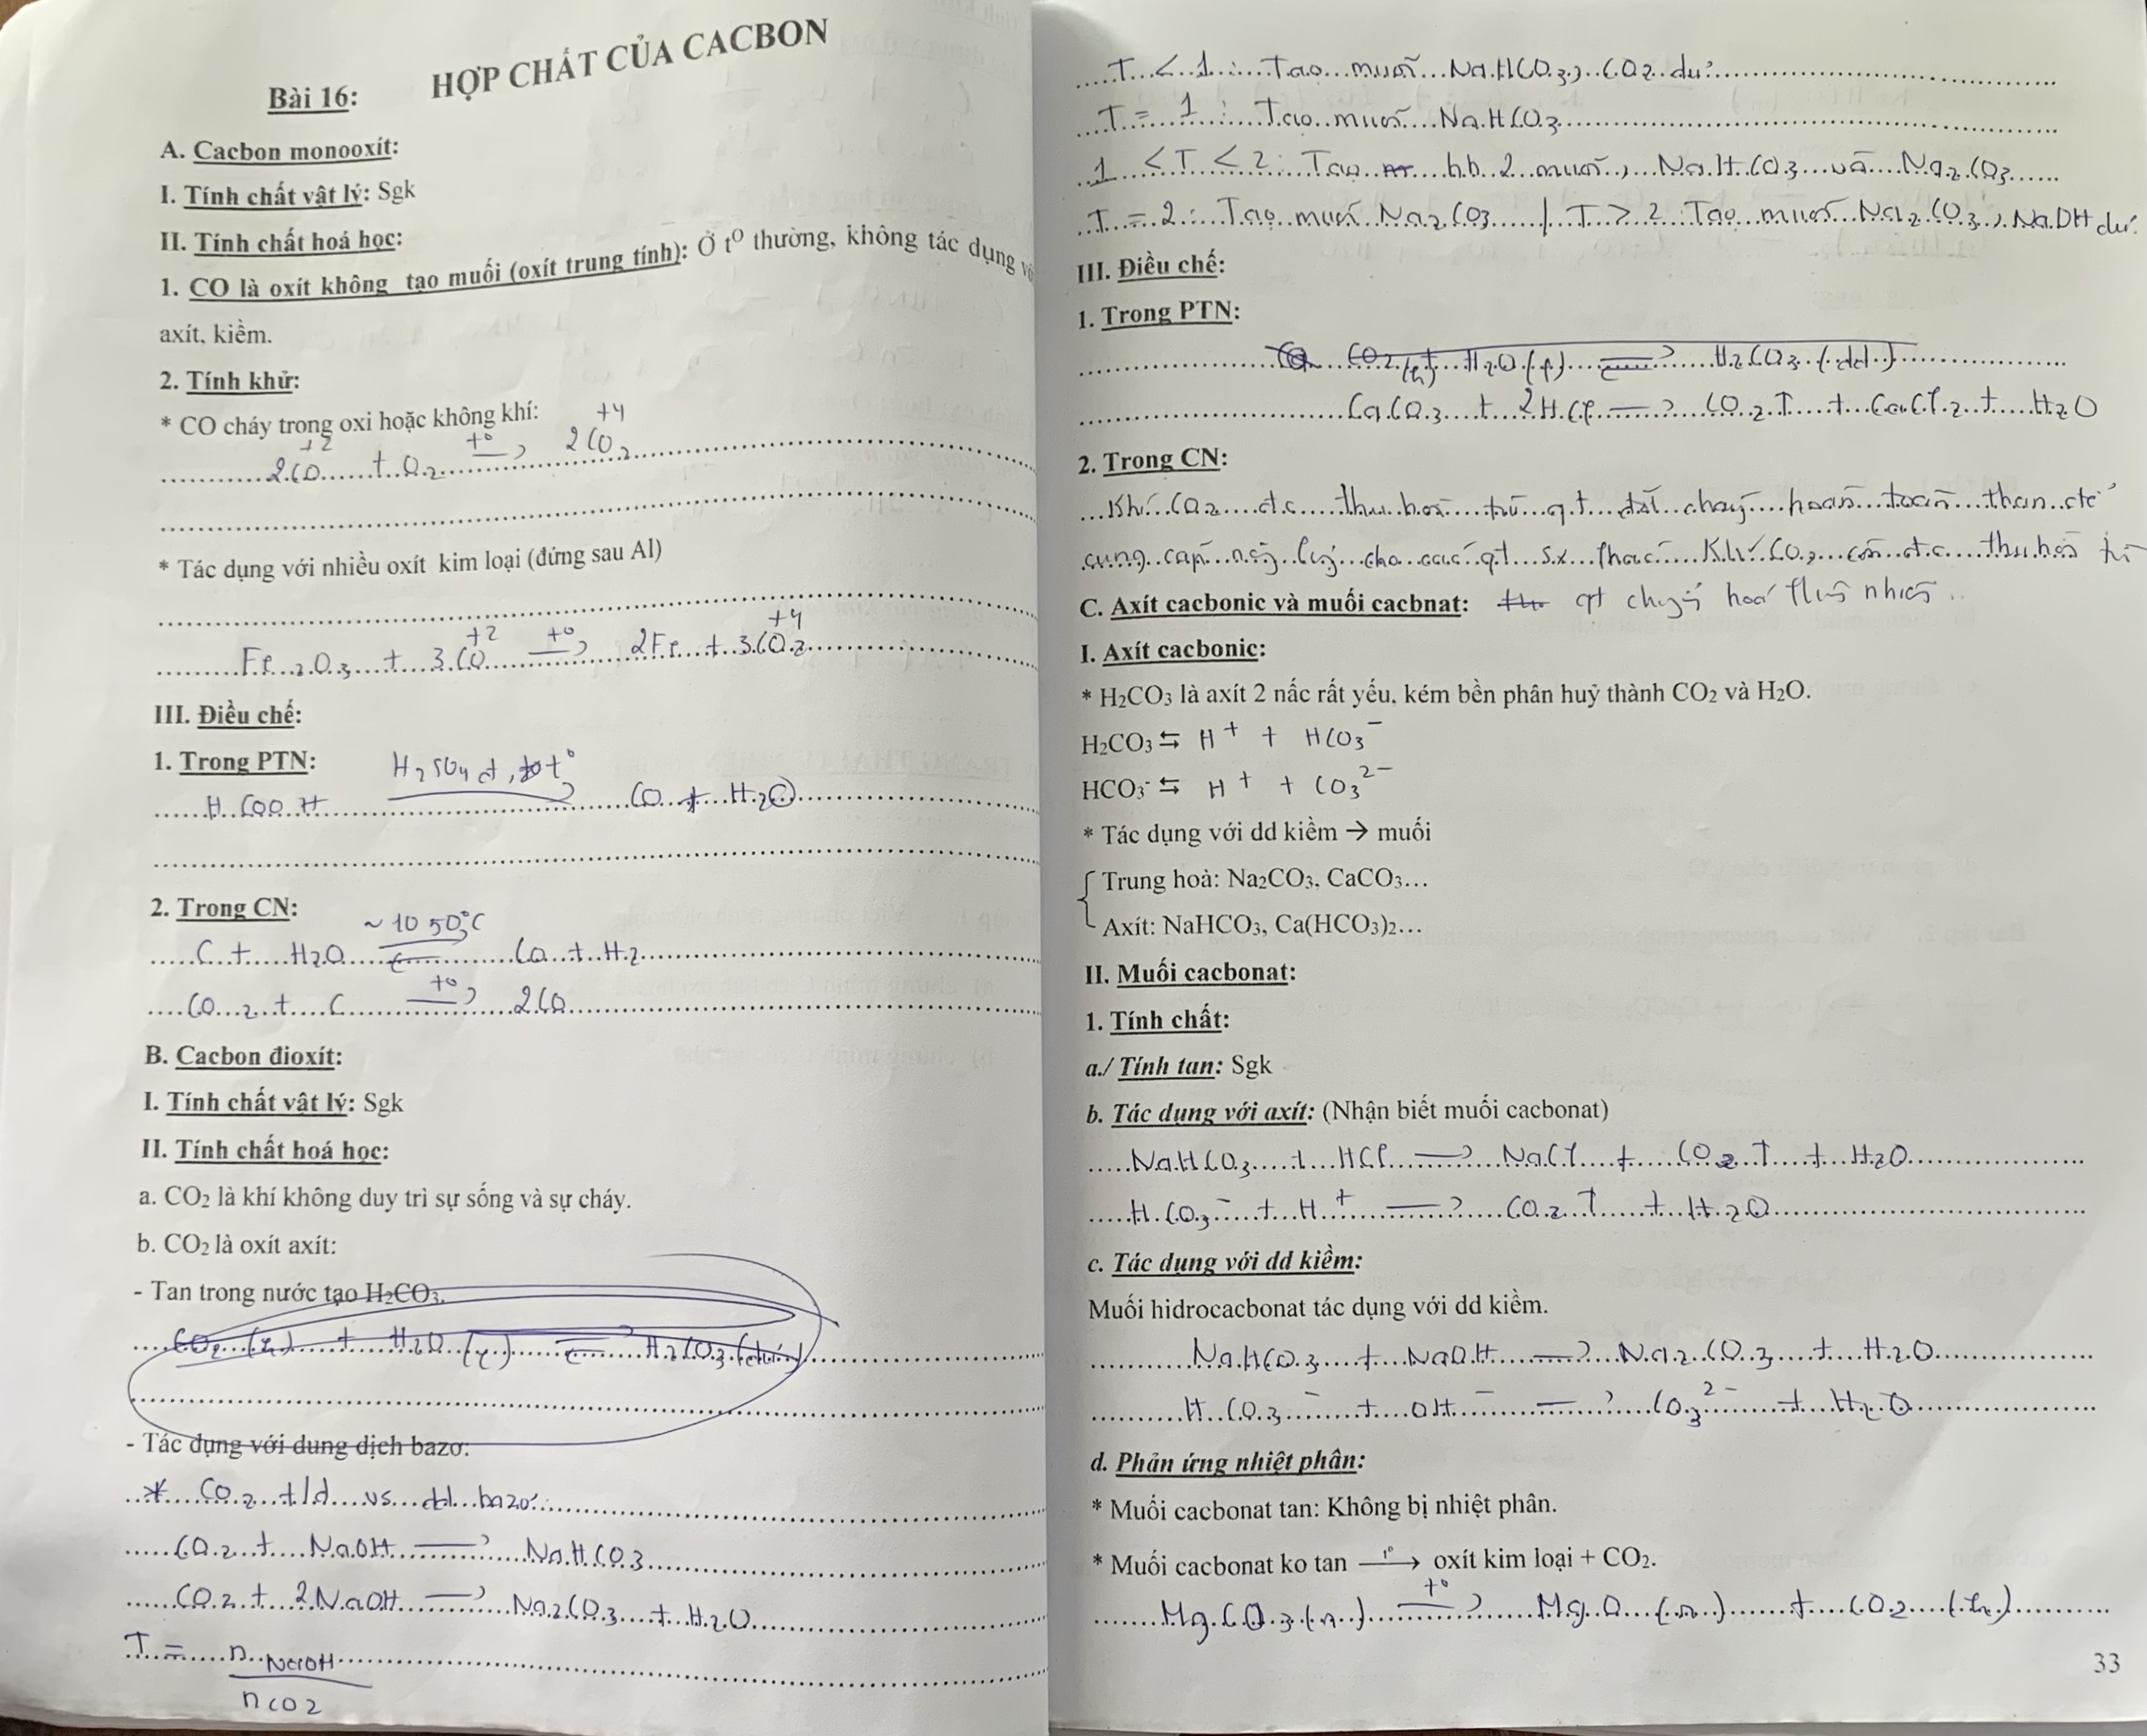 Bài 16: HỢP CHẤT CỦA CACBON
A. Cacbon monooxít:
I. Tính chất vật lý: Sgk
II. Tính chất hoá học:
1. CO là oxít không tạo muối (oxít trung tính): Ở t⁰ thường, không tác dụng
axít, kiềm.
2. Tính khử:
* CO cháy trong oxi hoặc không khí:
+2 +4
2CO + O₂ →(t⁰) 2CO₂
* Tác dụng với nhiều oxít kim loại (đứng sau Al)
+2 +4
Fe₂O₃ + 3CO →(t⁰) 2Fe + 3CO₂
III. Điều chế:
1. Trong PTN:
HCOOH →(H₂SO₄ đ, t⁰) CO + H₂O
2. Trong CN:
C + H₂O ⇄(~1050°C) CO + H₂
CO₂ + C →(t⁰) 2CO
B. Cacbon đioxít:
I. Tính chất vật lý: Sgk
II. Tính chất hoá học:
a. CO₂ là khí không duy trì sự sống và sự cháy.
b. CO₂ là oxít axít:
- Tan trong nước tạo H₂CO₃.
CO₂ (k) + H₂O (l) ⇄ H₂CO₃
- Tác dụng với dung dịch bazơ:
* CO₂ t/d vs dd bazơ:
CO₂ + NaOH → NaHCO₃
CO₂ + 2NaOH → Na₂CO₃ + H₂O
T = n NaOH / n CO₂
T < 1 : Tạo muối NaHCO₃, CO₂ dư
T = 1 : Tạo muối NaHCO₃
1 < T < 2 : Tạo hh 2 muối, NaHCO₃ và Na₂CO₃
T = 2 : Tạo muối Na₂CO₃ | T > 2 Tạo muối Na₂CO₃, NaOH dư.
III. Điều chế:
1. Trong PTN:
CO₂ (k) + H₂O (l) ⇄ H₂CO₃ (dd)
CaCO₃ + 2HCl → CO₂↑ + CaCl₂ + H₂O
2. Trong CN:
Khí CO₂ đc thu hồi từ qt đốt cháy hoàn toàn than để
cung cấp năg lượg cho các qt sx khác. Khí CO₂ còn đc thu hồi từ
C. Axít cacbonic và muối cacbnat: qt chuyển hoá thiên nhiên
I. Axít cacbonic:
* H₂CO₃ là axít 2 nấc rất yếu, kém bền phân huỷ thành CO₂ và H₂O.
H₂CO₃ ⇆ H⁺ + HCO₃⁻
HCO₃⁻ ⇆ H⁺ + CO₃²⁻
* Tác dụng với dd kiềm → muối
Trung hoà: Na₂CO₃, CaCO₃…
Axít: NaHCO₃, Ca(HCO₃)₂…
II. Muối cacbonat:
1. Tính chất:
a./ Tính tan: Sgk
b. Tác dụng với axít: (Nhận biết muối cacbonat)
NaHCO₃ + HCl → NaCl + CO₂↑ + H₂O
HCO₃⁻ + H⁺ → CO₂↑ + H₂O
c. Tác dụng với dd kiềm:
Muối hidrocacbonat tác dụng với dd kiềm.
NaHCO₃ + NaOH → Na₂CO₃ + H₂O
HCO₃⁻ + OH⁻ → CO₃²⁻ + H₂O
d. Phản ứng nhiệt phân:
* Muối cacbonat tan: Không bị nhiệt phân.
* Muối cacbonat ko tan →(t⁰) oxít kim loại + CO₂.
MgCO₃ (r) →(t⁰) MgO (r) + CO₂ (k)
33